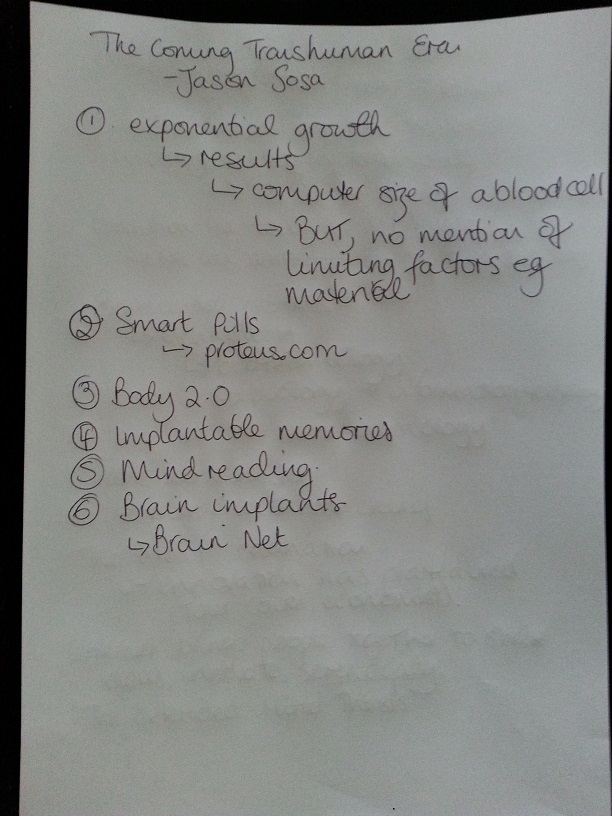 The Coming Transhuman Era
-Jason Sosa
① exponential growth
↳ results
↳ computer size of a blood cell
↳ BUT, no mention of
limiting factors eg
material
② Smart Pills
→ proteus.com
③ Body 2.0
④ Implantable memories
⑤ Mind reading
⑥ Brain implants
↳ Brain Net